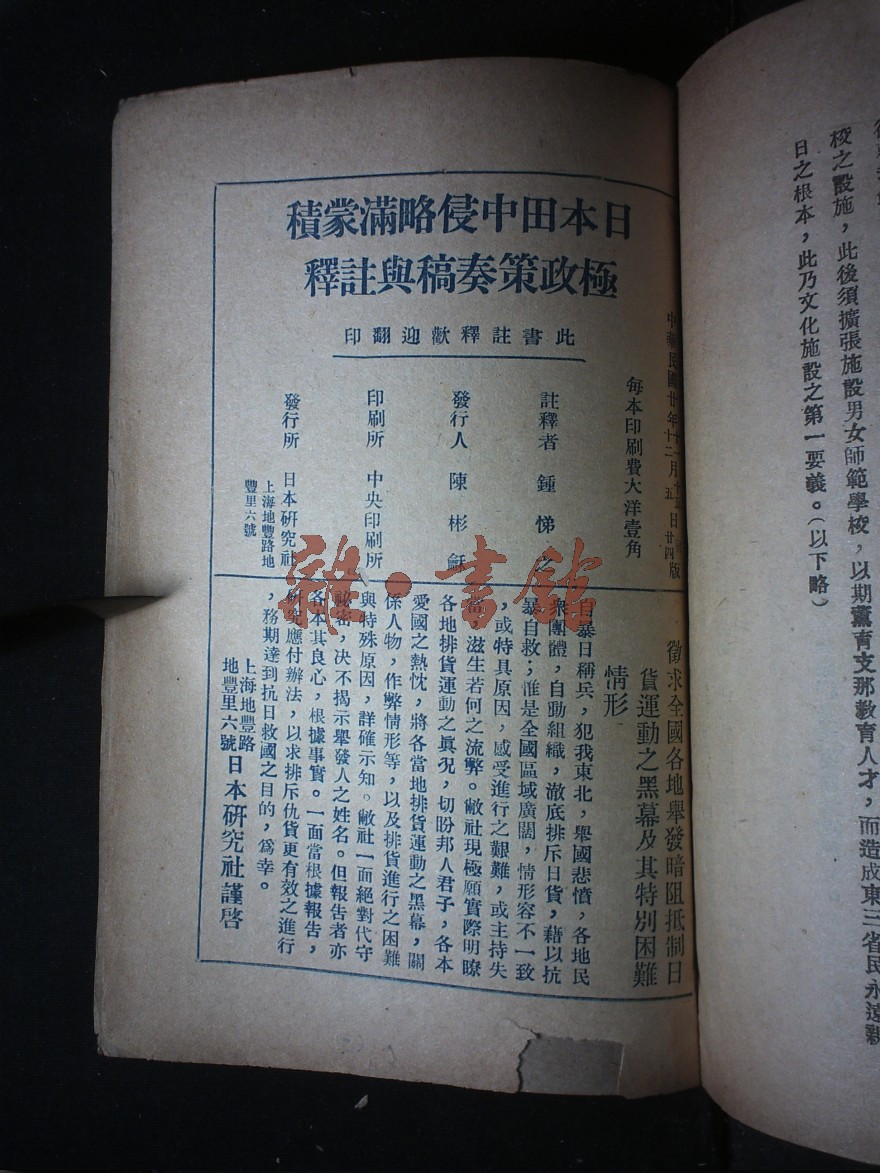 日本田中侵略滿蒙積
極政策奏稿與註釋
此書註釋歡迎翻印
中華民國廿年
十二月
五
日
廿四版
每本印刷費大洋壹角
註釋者 鍾悌之
發行人 陳彬龢
印刷所 中央印刷所
發行所 日本研究社
上海地豐路地
豐里六號
徵求全國各地舉發暗阻抵制日
貨運動之黑幕及其特別困難
情形
自暴日稱兵，犯我東北，舉國悲憤，各地民
衆團體，自動組織，澈底排斥日貨，藉以抗
暴自救；惟是全國區域廣闊，情形容不一致
，或特具原因，感受進行之艱難，或主持失
當，滋生若何之流弊。敝社現極願實際明瞭
各地排貨運動之眞況，切盼邦人君子，各本
愛國之熱忱，將各當地排貨運動之黑幕，關
係人物，作弊情形等，以及排貨進行之困難
與特殊原因，詳確示知。敝社一面絕對代守
祕密，决不揭示舉發人之姓名。但報告者亦
各本其良心，根據事實。一面當根據報告，
研究應付辦法，以求排斥仇貨更有效之進行
，務期達到抗日救國之目的，爲幸。
上海地豐路
地豐里六號
日本研究社謹啓
校之設施，此後須擴張施設男女師範學校，以期薰育支那教育人才，而造成東三省民永遠親
日之根本，此乃文化施設之第一要義。（以下略）
雜·書館